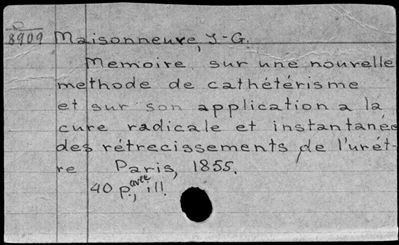 D
8909 Maisonneuve, J-G.
Memoire sur une nouvelle
methode de cathétérisme
et sur son application a la
cure radicale et instantanée
des rétrecissements de l'urét-
re Paris, 1855.
40 p., avec ill.